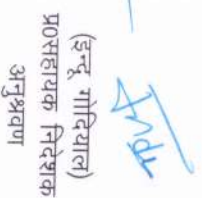 Indu
(इन्दू गोदियाल)
प्र0सहायक निदेशक
अनुश्रवण